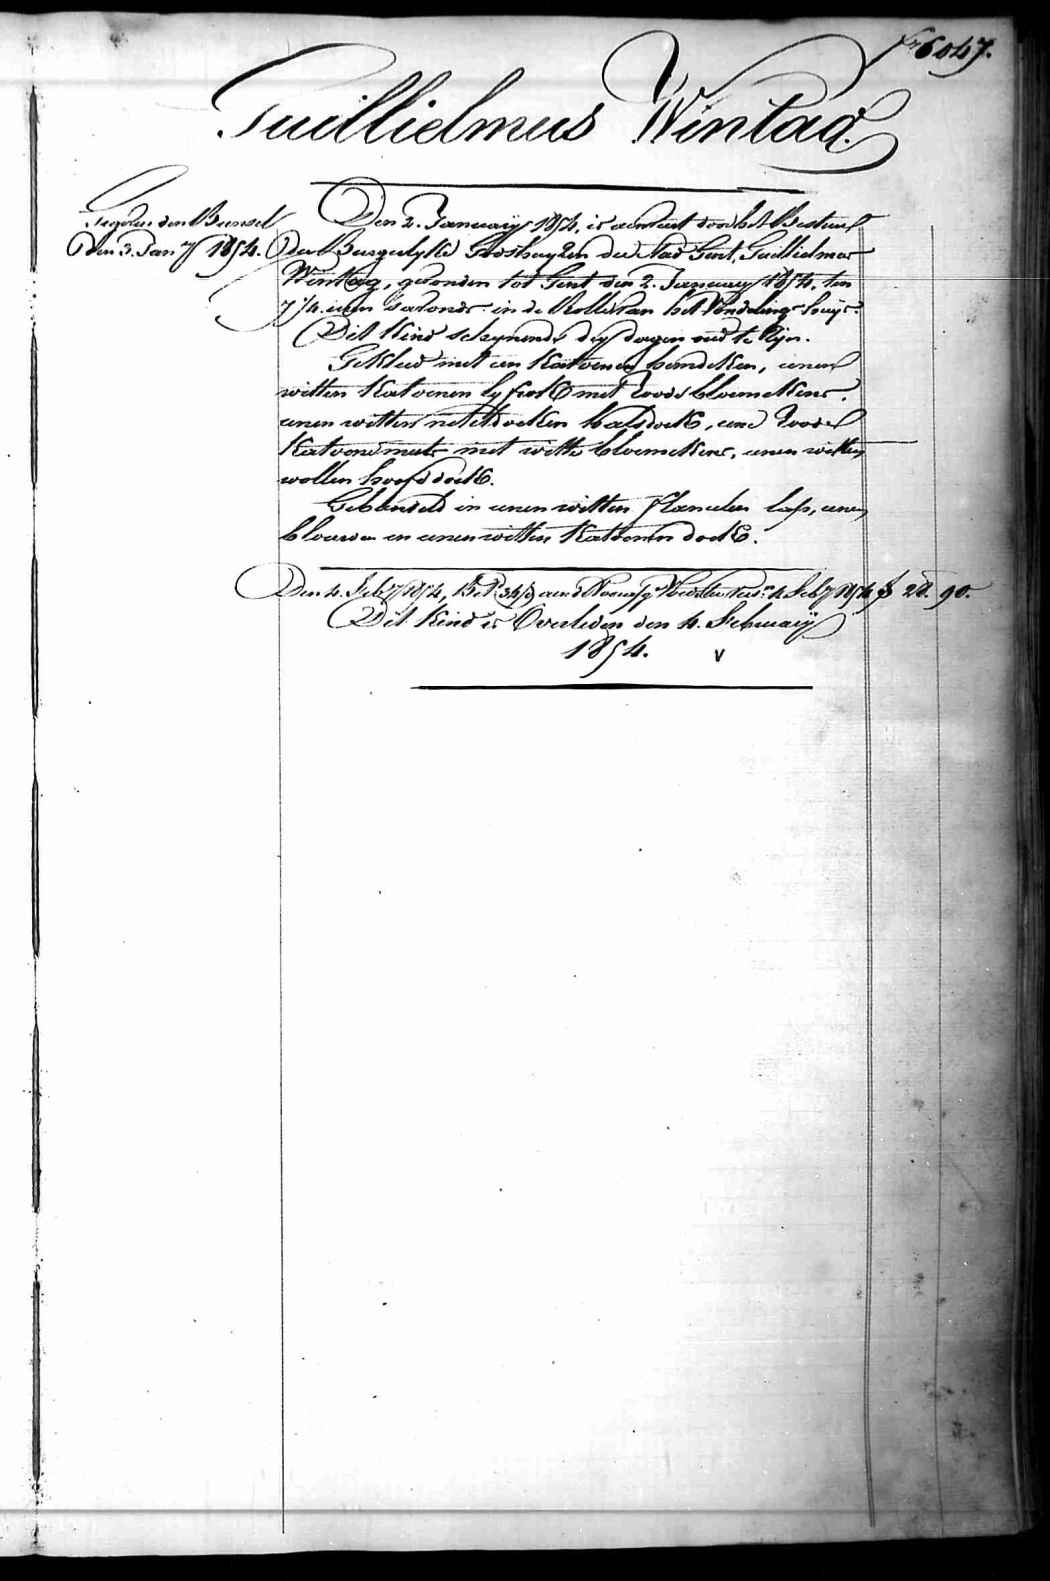 6047.
Guillielmus Wintag.
den Bunsel
Den 3. Jany 1854.
Den 2. January 1854, is door het Bestuur
der Burgerlyke Godshuyzen der Stad Gent, Guillielmus
Wintag, gevonden tot Gent den 2. January 1854, ten
7 1/4 uren 's avonds in de Rolle van het Vondelinghuys.
Dit Kind schynende dry dagen oud te zyn.
Gekleed met een Katoenen hemdeken, eenen
witten Katoenen lyfrok met roode bloemekens,
eenen witten neteldoeken halsdoek, eene roode
Katoene muts met witte bloemekens, eenen witten
wollen hoofddoek.
Gebundeld in eenen witten flanelen lap, eenen
blauwen en eenen witten Katoenen doek.
Den 4. Feby 1854, 4 Feby 1854 f 28. 90.
Dit Kind is Overleden den 4. February
1854. v